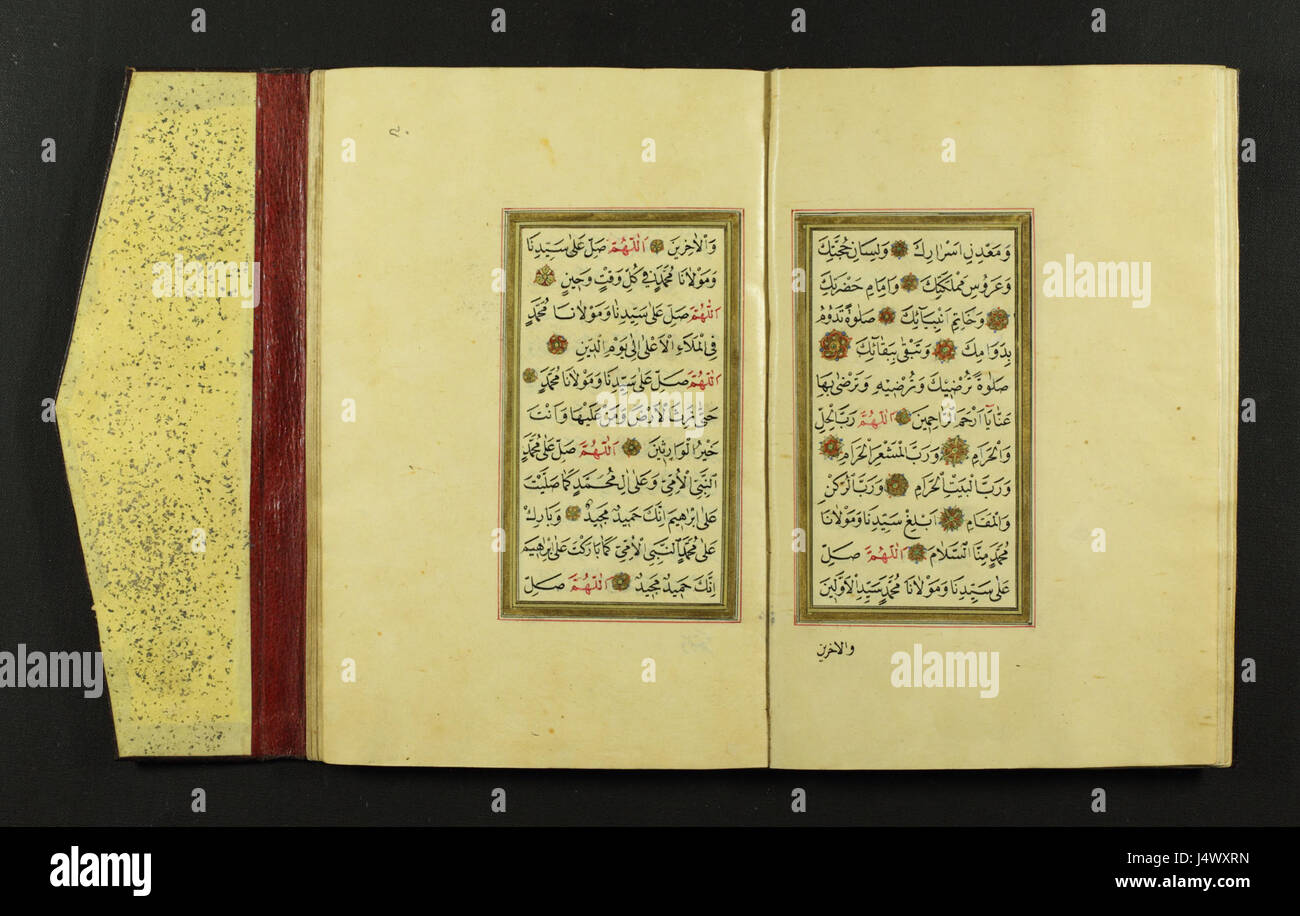 وَمَعْدِنِ اَسْرَارِكَ وَلِسَانِ حُجَّتِكَ
وَعَرُوسِ مَمْلَكَتِكَ وَاِمَامِ حَضْرَتِكَ
وَخَاتَمِ اَنْبِيَائِكَ صَلٰوةً تَدُومُ
بِدَوَامِكَ وَتَبْقٰى بِبَقَائِكَ
صَلٰوةً تُرْضِيكَ وَتُرْضِيهِ وَتَرْضٰى بِهَا
عَنَّا يَآ اَرْحَمَ الرَّاحِمِينَ اَللّٰهُمَّ رَبَّ الْحِلِّ
وَالْحَرَامِ وَرَبَّ الْمَشْعَرِ الْحَرَامِ
وَرَبَّ الْبَيْتِ الْحَرَامِ وَرَبَّ الرُّكْنِ
وَالْمَقَامِ اَبْلِغْ سَيِّدِنَا وَمَوْلَانَا
مُحَمَّدٍ مِنَّا السَّلَامَ اَللّٰهُمَّ صَلِّ
عَلٰى سَيِّدِنَا وَمَوْلَانَا مُحَمَّدٍ سَيِّدِ الْاَوَّلِينَ
والاخرين
وَالْاٰخِرِينَ اَللّٰهُمَّ صَلِّ عَلٰى سَيِّدِنَا
وَمَوْلَانَا مُحَمَّدٍ فِي كُلِّ وَقْتٍ وَحِينٍ
اَللّٰهُمَّ صَلِّ عَلٰى سَيِّدِنَا وَمَوْلَانَا مُحَمَّدٍ
فِي الْمَلَاءِ الْاَعْلٰى اِلٰى يَوْمِ الدِّينِ
اَللّٰهُمَّ صَلِّ عَلٰى سَيِّدِنَا وَمَوْلَانَا مُحَمَّدٍ
حَتّٰى تَرِثَ الْاَرْضَ وَمَنْ عَلَيْهَا وَاَنْتَ
خَيْرُ الْوَارِثِينَ اَللّٰهُمَّ صَلِّ عَلٰى مُحَمَّدٍ
النَّبِيِّ الْاُمِّيِّ وَعَلٰى اٰلِ مُحَمَّدٍ كَمَا صَلَّيْتَ
عَلٰى اِبْرٰهِيمَ اِنَّكَ حَمِيدٌ مَجِيدٌ وَبَارِكْ
عَلٰى مُحَمَّدٍ النَّبِيِّ الْاُمِّيِّ كَمَا بَارَكْتَ عَلٰى اِبْرٰهِيمَ
اِنَّكَ حَمِيدٌ مَجِيدٌ اَللّٰهُمَّ صَلِّ
alamy stock photo
J4WXRN
www.alamy.com